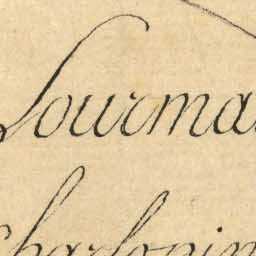 Lourma
harlonin